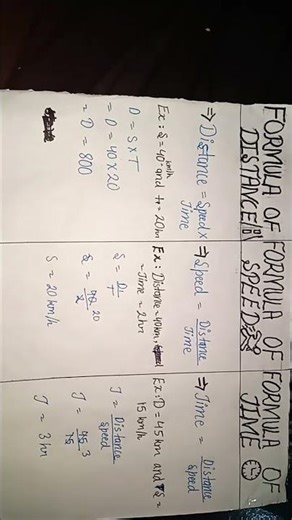 FORMULA OF
DISTANCE
⇒ Distance = Speed x
Time
Ex: S = 40 km/h and t = 20hr
D = S x T
= D = 40 x 20
= D = 800
FORMULA OF
SPEED
⇒ Speed = Distance
Time
Ex: Distance = 40km,
= Time = 2hr
S = D
T
S = 40 20
2
S = 20 km/h
FORMULA OF
TIME
⇒ Time = Distance
Speed
Ex: D = 45 km and S =
15 km/h
T = Distance
Speed
T = 45 3
15
T = 3 hr